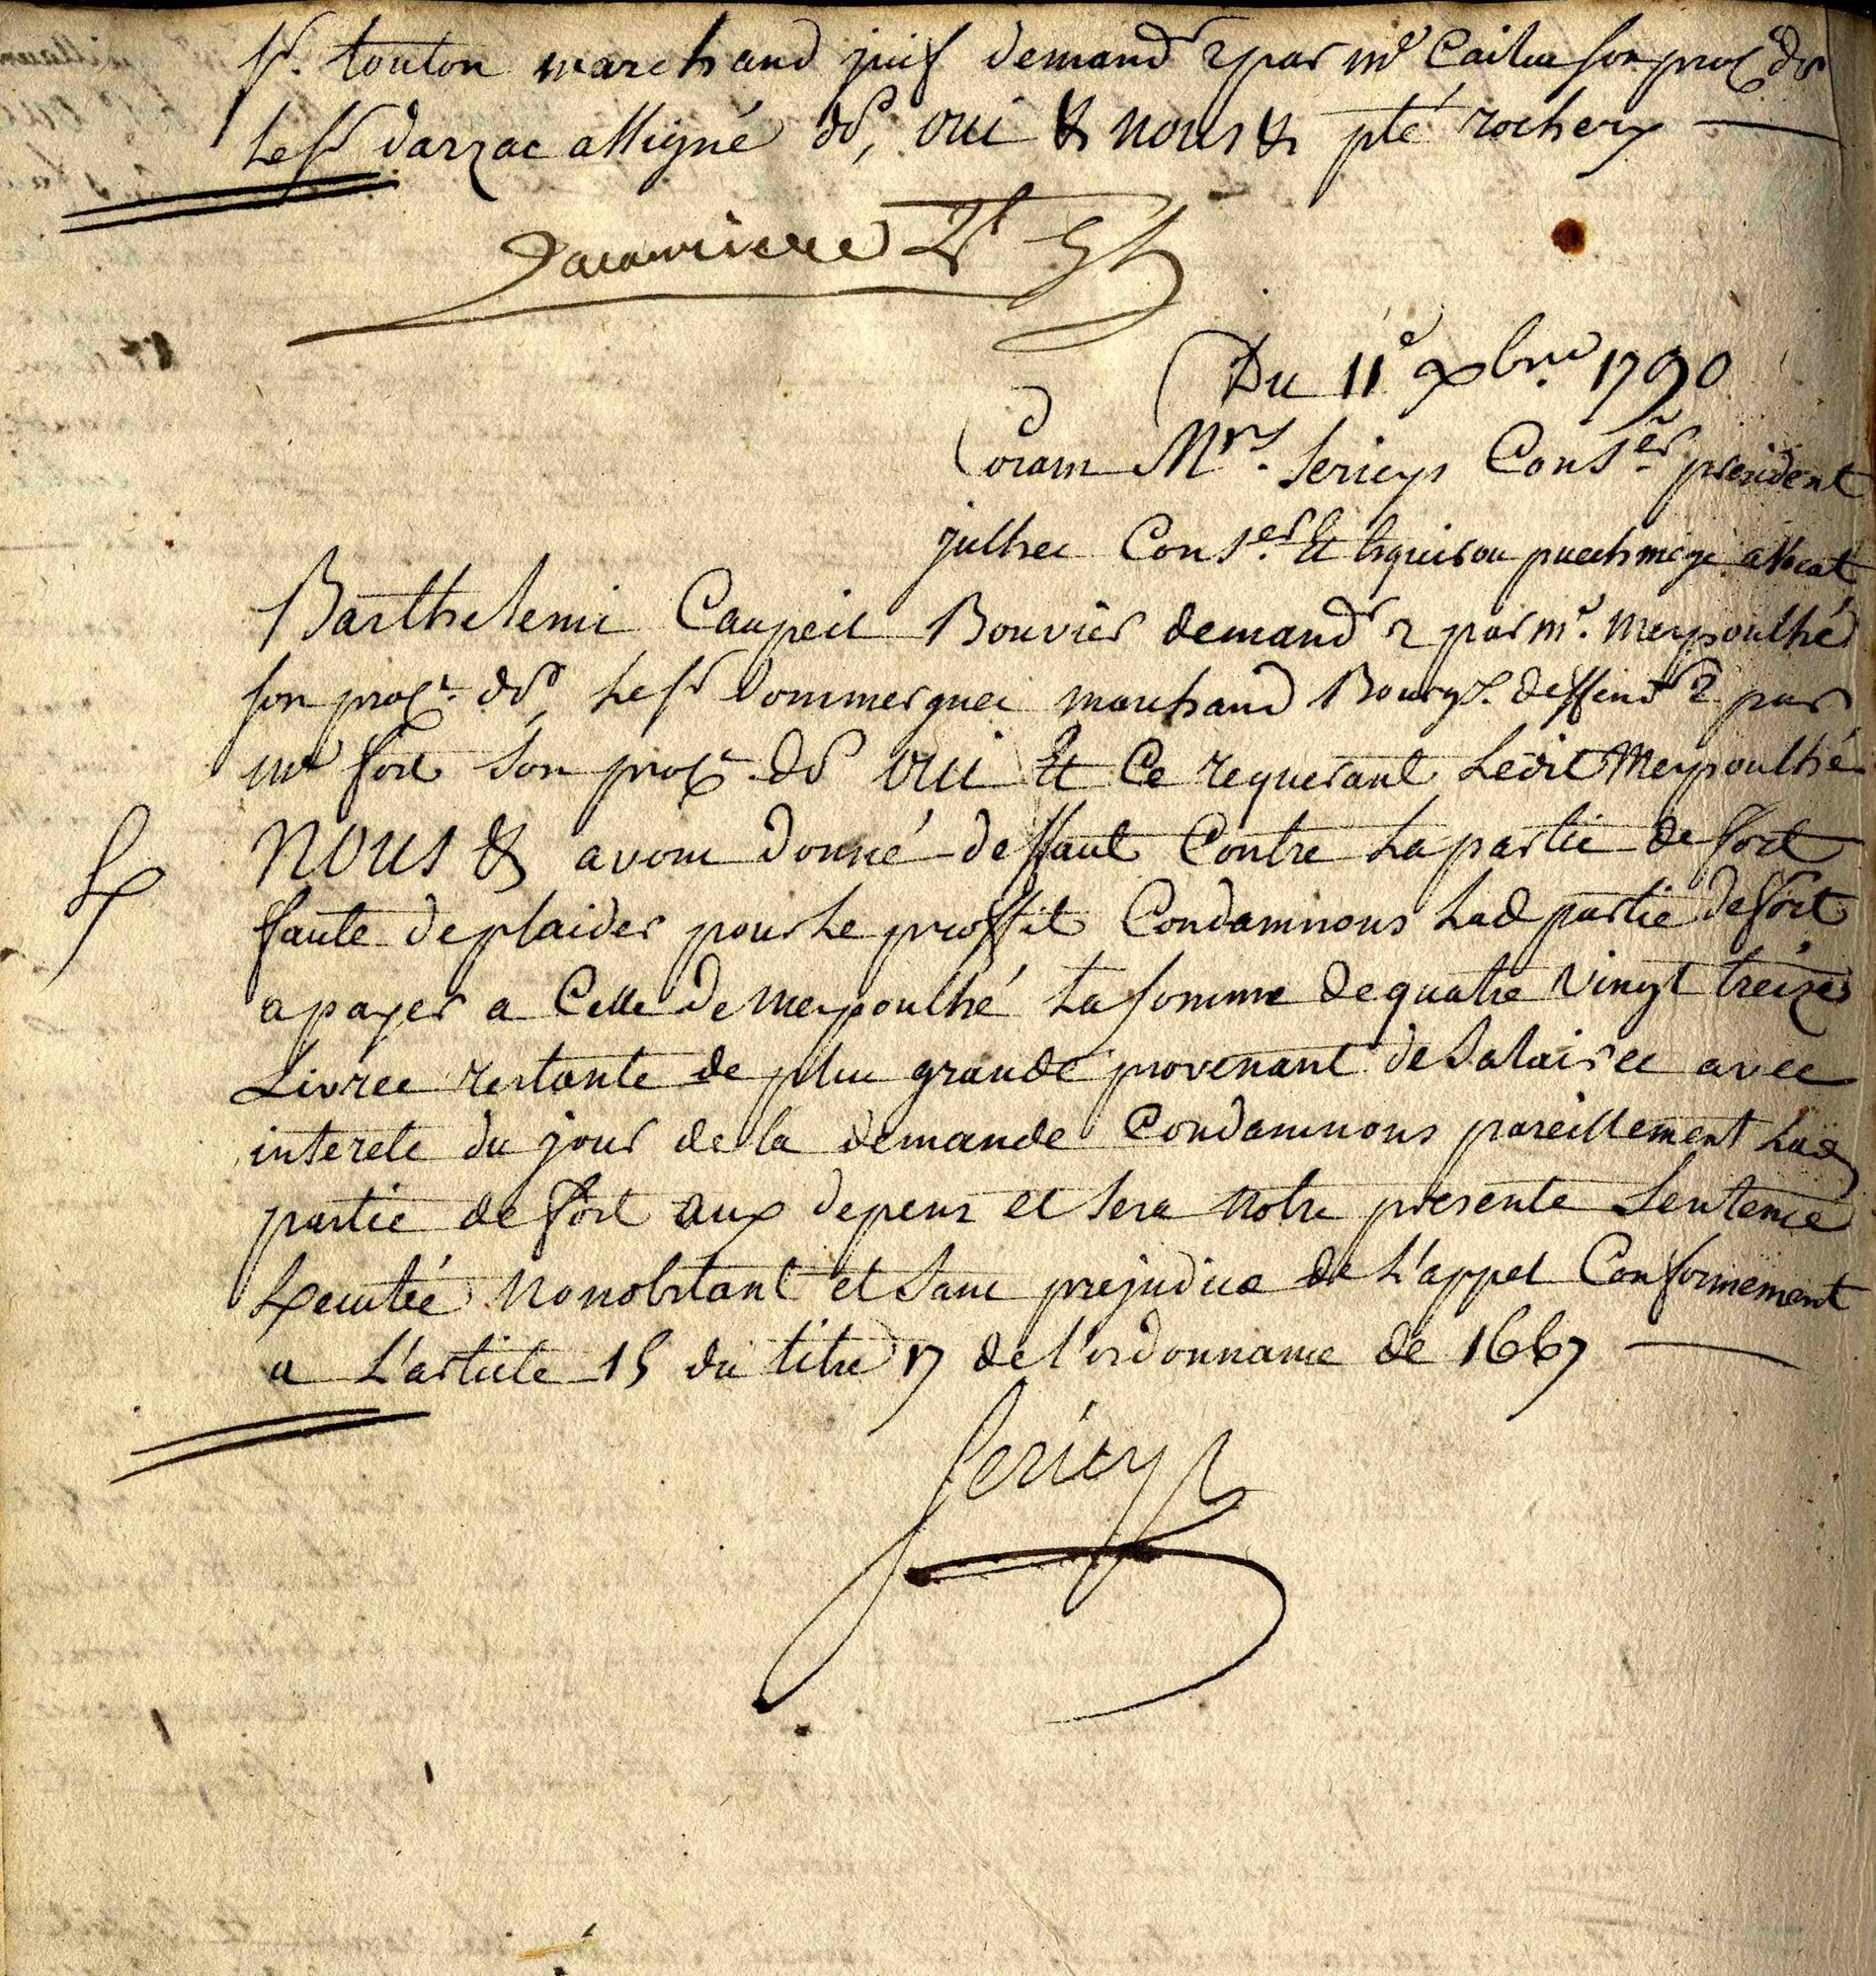 Sr. touton marchand juif demandr par me Cailus son procr dt
Le sr darzac assigné dt, oui & nous & pté rochery
Du 11e xbre 1790
Coram Mrs. Serieys Conser president
julhes Conser Et puechmege avocat
Barthelemi Caupeil Bouvier demandr par me. Meypoulhé
son procr. dt, Le sr Dommergues marchand Bourgs. deffendr par
me fort son procr dt oui Et Ce requerant Ledit Meypoulhé
NOUS & avons donné deffaut Contre La partie de fort
faute de plaider pour Le proffit Condamnons Lad partie de fort
a payer a Celle de Meypoulhé La somme de quatre vingt treize
Livres restante de plus grande provenant de Salaires avec
interets du jour de la demande Condamnons pareillement Lad
partie de fort aux depens et sera notre presente Sentence
Executée Nonobstant et Sans prejudice de L'appel Conformement
a L'article 15 du titre 17 de l'ordonnance de 1667
Serieys